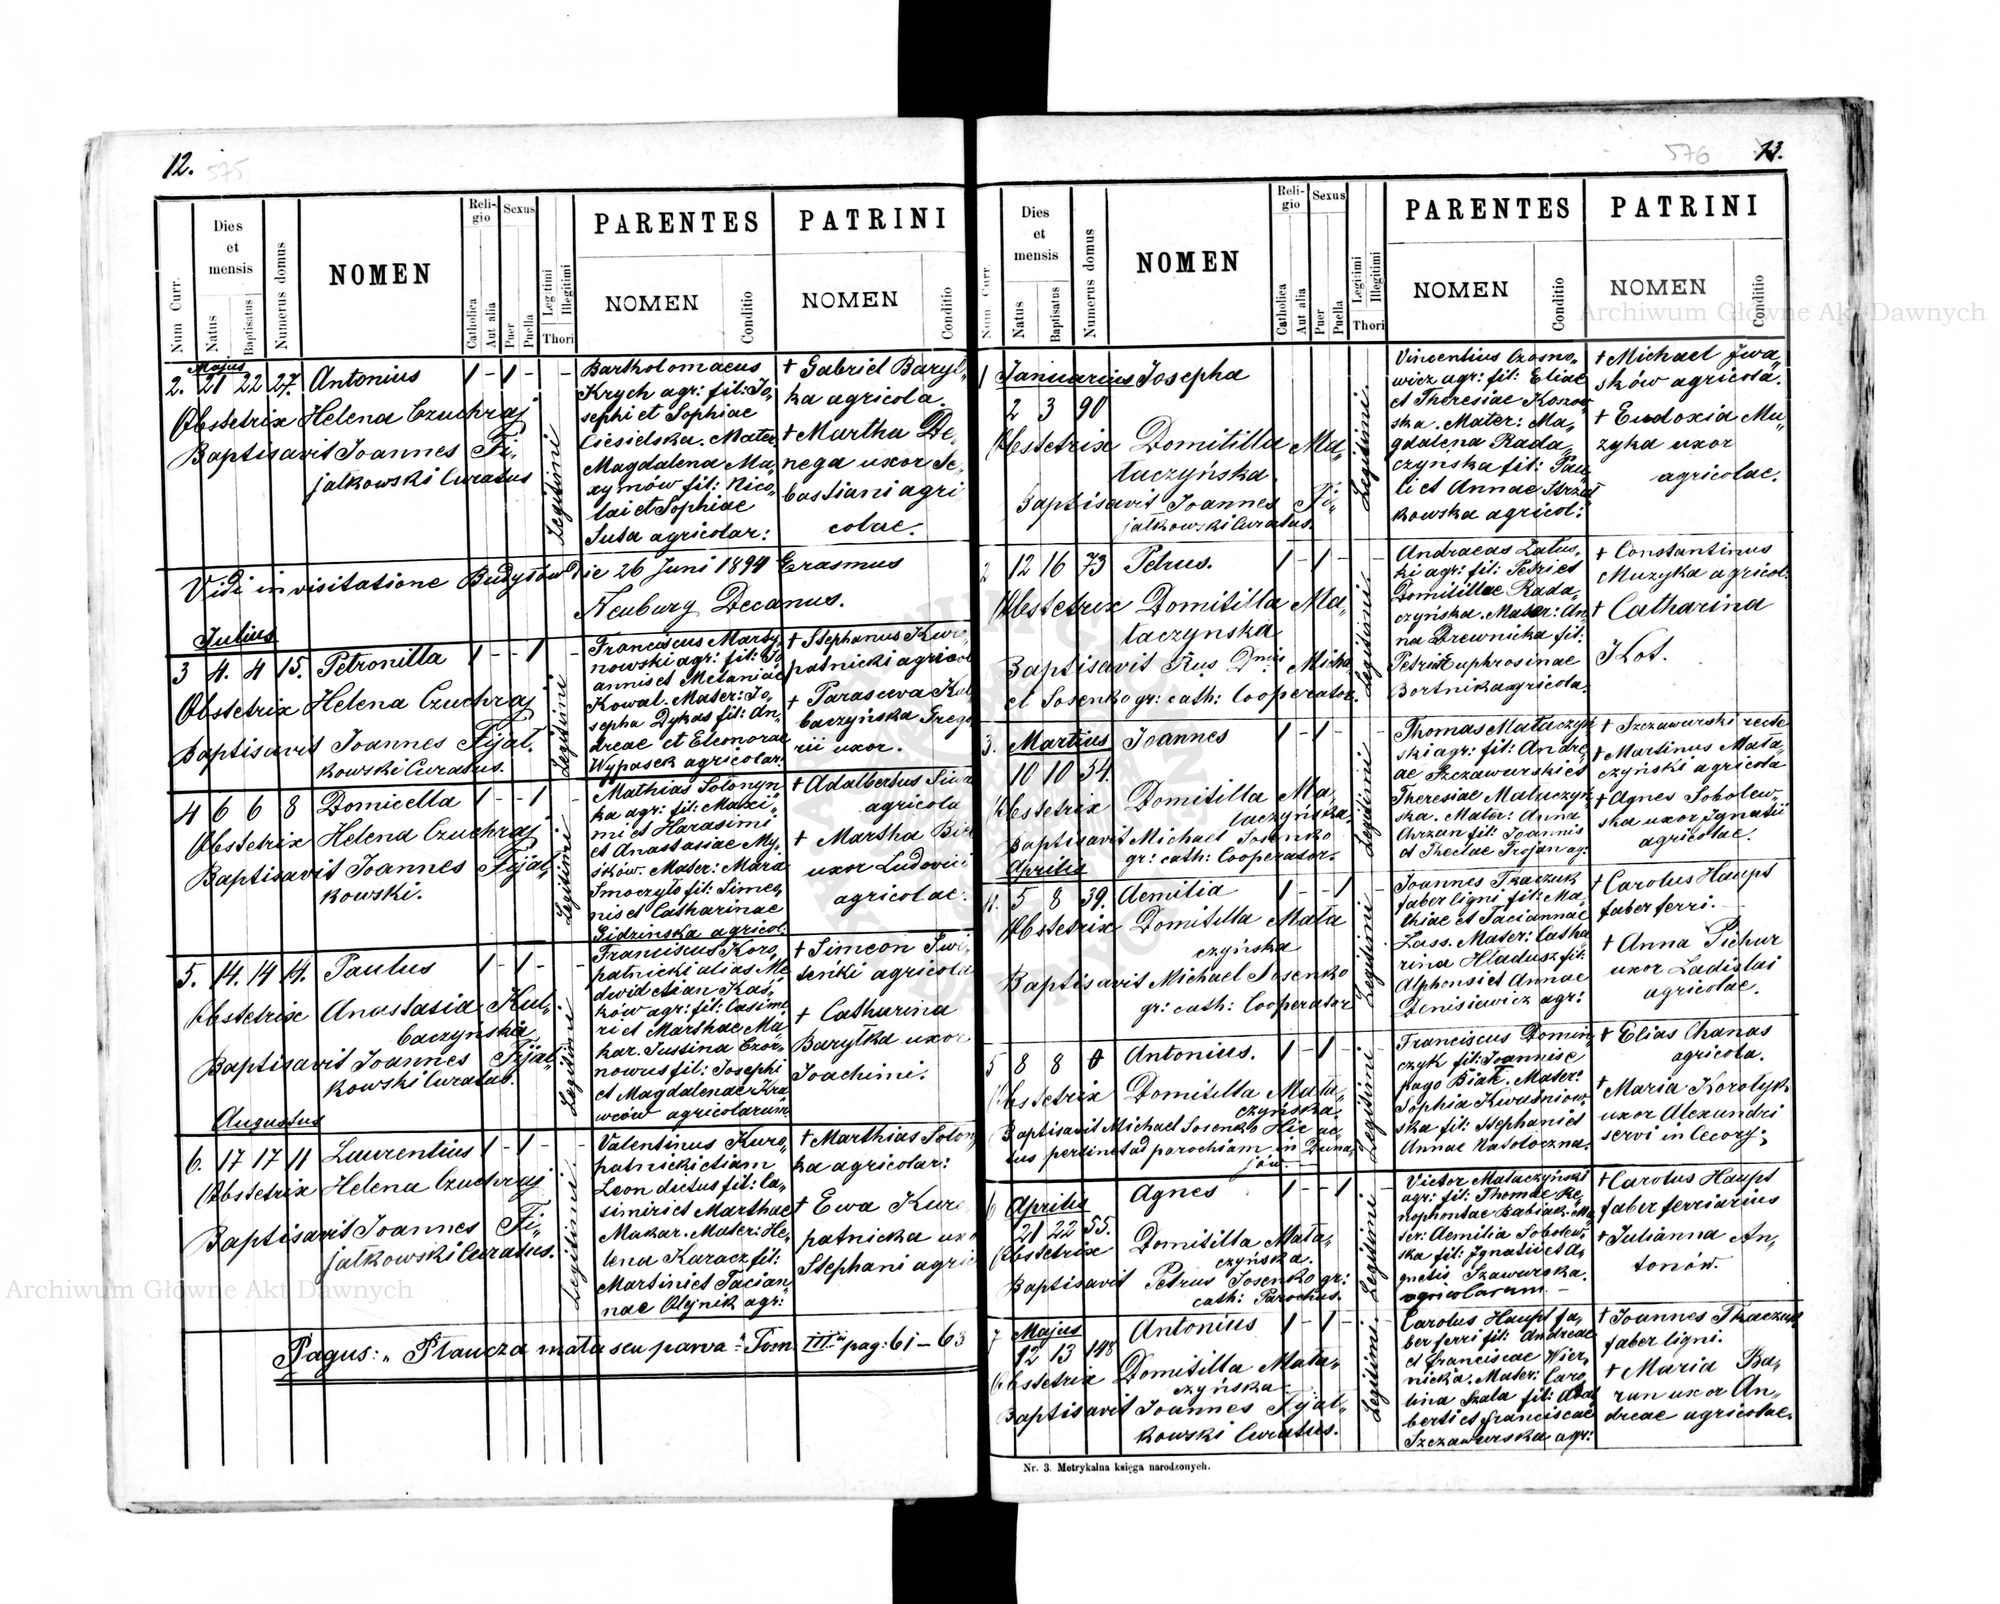 12. 575
Num Curr.
Dies et mensis
Natus
Baptisatus
Numerus domus
NOMEN
Religio
Catholica
Aut alia
Sexus
Puer
Puella
Legitimi
Illegitimi
Thori
PARENTES
NOMEN
Conditio
PATRINI
NOMEN
Conditio
Majus
2. 21 22 27. Antonius 1 - 1 - -
Obstetrix Helena Czuchraj
Baptisavit Joannes Fi„
jalkowski Curatus
Legitimi
Bartholomaeus
Krych agr: fil: Jo„
sephi et Sophiae
Ciesielska. Mater
Magdalena Ma„
xymów fil: Nico„
lai et Sophiae
Suta agricolar:
† Gabriel Baryl„
ka agricola.
† Martha De„
nega uxor Se„
bastiani agri
colae.
Vidi in visitatione Budyłów die 26 Juni 1894 Erasmus
Neuburg Decanus.
Julius
3 4. 4 15. Petronilla 1 - - 1 -
Obstetrix Helena Czuchraj
Baptisavit Joannes Fijał„
kowski Curatus.
Legitimi
Franciscus Marty„
nowski agr: fil: Jo
annis et Melaniae
Kowal. Mater: Jo„
sepha Dykas fil: An„
dreae et Eleonorae
Wypasek agricolar:
† Stephanus Kuro„
patnicki agricol
† Parasceva Kul
baczyńska Grego
rii uxor.
4 6 6 8 Domicella 1 - - 1 -
Obstetrix Helena Czuchraj
Baptisavit Joannes Fijał„
kowski.
Legitimi
Mathias Sołonyn„
ka agr: fil: Maxi„
mi et Harasimi
et Anastasiae My„
sków. Mater: Maria
Smoczyło fil: Simeo„
nis et Catharinae
Gidzinska agricol.
† Adalbertus Siwa
agricola
† Martha Bie
uxor Ludovici
agricolae.
5. 14. 14 14. Paulus 1 - 1 -
Obstetrix Anastasia Kul„
baczyńska
Baptisavit Joannes Fijał„
kowski Curatus.
Legitimi
Franciscus Kuro„
patnicki alias Me„
dwid etiam Kaś„
ków agr: fil: Casimi
ri et Marthae Ma„
kar. Justina Czor„
nowus fil: Josephi
et Magdalenae Kra
wców agricolarum
† Simeon Swi„
teńki agricola
† Catharina
Baryłka uxor
Joachimi.
Augustus
6. 17 17 11 Laurentius 1 - 1 - -
Obstetrix Helena Czuchraj
Baptisavit Joannes Fi„
jalkowski Curatus.
Legitimi
Valentinus Kuro„
patnicki etiam
Leon dictus fil: Ca„
simiri et Marthae
Makar. Mater: He„
lena Karacz fil:
Martini et Tacian„
nae Olejnik agr:
† Marthias Sołon
ka agricolar:
† Ewa Kuro
patnicka ux
Stephani agric
Pagus: „Płaucza mała seu parva" Tom. III pag: 61 - 63
576 13.
Num Curr.
Dies et mensis
Natus
Baptisatus
Numerus domus
NOMEN
Religio
Catholica
Aut alia
Sexus
Puer
Puella
Legitimi
Illegitimi
Thori
PARENTES
NOMEN
Conditio
PATRINI
NOMEN
Conditio
1 Januarius Josepha
2 3 90
Obstetrix Domitilla Ma„
łaczyńska.
Baptisavit Joannes Fi„
jalkowski Curatus.
Legitimi
Vincentius Czosno„
wicz agr: fil: Eliae
et Theresiae Kozow
ska. Mater: Ma„
gdalena Rada„
czyńska fil: Pau„
li et Annae Strzał
kowska agricol:
† Michael Jwa„
sków agricola.
† Eudoxia Mu„
zyka uxor
agricolae.
2 12 16 73 Petrus. 1 - 1 - -
Obstetrix Domitilla Ma„
łaczynska
Baptisavit Rus Dnus Micha
el Sosenko gr: cath: Cooperator.
Legitimi
Andraeas Zatus„
ki agr: fil: Petri et
Domitillae Rada„
czyńska. Mater: An„
na Drewnicka fil:
Petri et Euphrosinae
Bortnik agricola.
† Constantinus
Muzyka agricol:
† Catharina
Kot.
3. Martius Joannes 1 - 1 - -
10 10 54.
Obstetrix Domitilla Ma„
łaczyńska.
Baptisavit Michael Sosenko
gr: cath: Cooperator.
Legitimi
Thomas Małaczyń
ski agr: fil: Andre„
ae Szczawurski et
Theresiae Małaczyń
ska. Mater: Anna
Chrzan fil: Joannis
et Theclae Trojan agr:
† Szczawurski recte
† Martinus Mała„
czyński agricola
† Agnes Sobolew„
ska uxor Ignatii
agricolae.
Aprilis
4. 5 8 39. Aemilia 1 - - 1 -
Obstetrix Domitilla Mała
czyńska
Baptisavit Michael Sosenko
gr: cath: Cooperator
Legitimi
Joannes Tkaczuk
faber ligni fil: Ma„
thiae et Taciannae
Lass. Mater: Catha
rina Hladusz fil:
Alphonsi et Annae
Denisiewicz agr:
† Carolus Haupt
faber ferri.
† Anna Pichur
uxor Ladislai
agricolae.
5 8 8 0 Antonius. 1 - 1 - -
Obstetrix Domitilla Mała„
czyńska.
Baptisavit Michael Sosenko Hic ac„
tus pertinet ad parochiam in Duna„
jów.
Legitimi
Franciscus Domin„
czyk fil: Joannis e
pago Białe. Mater:
Sophia Kwaśniow„
ska fil: Stephani et
Annae Natołoczna.
† Elias Chanas
agricola.
† Maria Korołyk
uxor Alexandri
servi in Cecory.
6 Aprilis Agnes 1 - - 1 -
21 22 55.
Obstetrix Domitilla Mała„
czyńska.
Baptisavit Petrus Sosenko gr:
cath: Parochus.
Legitimi
Victor Małaczyński
agr: fil: Thomae Xe„
nophontae Babiak. Ma
ter: Aemilia Sobolew„
ska fil: Ignatii et A„
gnetis Szawurska.
agricolarum
† Carolus Haupt
faber ferriarius
† Julianna An„
tonów.
7 Majus Antonius 1 - 1 - -
12 13 148
Obstetrix Domitilla Mała„
czyńska
Baptisavit Joannes Fijał„
kowski Curatus.
Legitimi
Carolus Haupt fa„
ber ferri fil: Andreae
et Franciscae Wier„
nicka. Mater: Caro„
lina Szala fil: Adal
berti et Franciscae
Szczawurska agr:
† Joannes Tkaczuk
faber ligni.
† Maria Ba„
ran uxor An„
dreae agricolae.
Nr. 3. Metrykalna księga narodzonych.
Archiwum Główne Akt Dawnych
Archiwum Główne Akt Dawnych